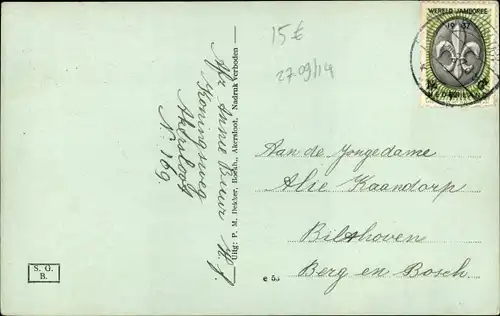 15€
27.09/14
WERELD JAMBOREE
1937
Nederland
Aan de Jongedame
Alie Kaandorp
Bilthoven
Berg en Bosch.
Uitg: P. M. Dekker, Boekh., Akersloot. Nadruk verboden
Afz Annie
Koningsweg
Akersloot
N. 169.
S. O.
B.
e 53